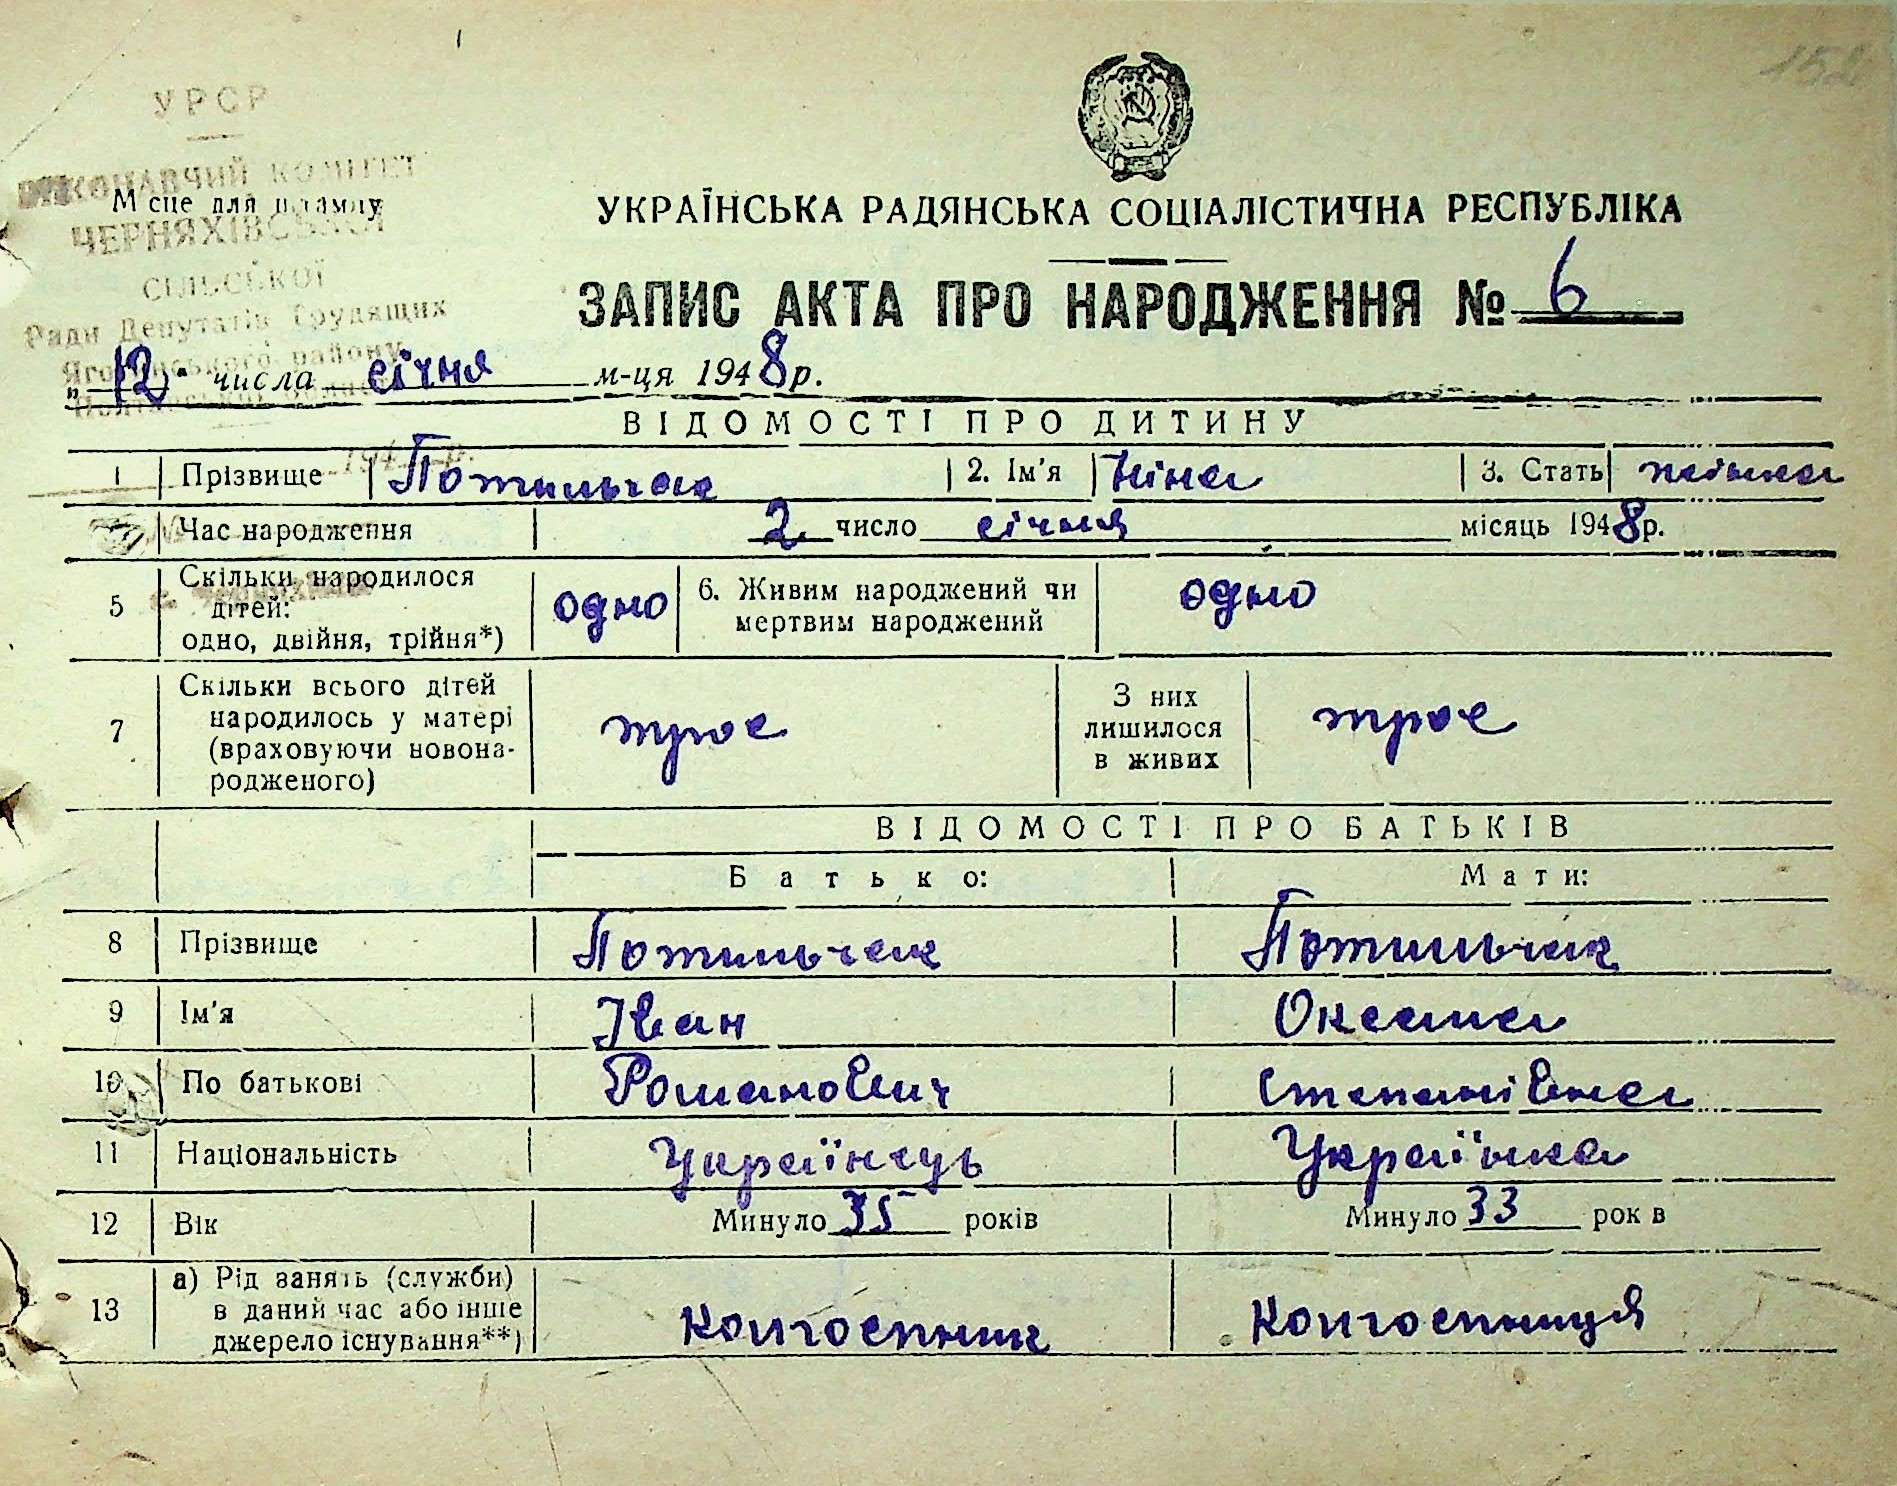 152
УРСР
ВИКОНАВЧИЙ КОМІТЕТ
Місце для штампу
ЧЕРНЯХІВСЬКОЇ
СІЛЬСЬКОЇ
Ради Депутатів Трудящих
Яготинського району
Полтавської області
194 р.
УКРАЇНСЬКА РАДЯНСЬКА СОЦІАЛІСТИЧНА РЕСПУБЛІКА
ЗАПИС АКТА ПРО НАРОДЖЕННЯ № 6
„12“ числа січня м-ця 1948 р.
ВІДОМОСТІ ПРО ДИТИНУ
1 Прізвище Потильчак 2. Ім'я Ніна 3. Стать жінка
Час народження 2 число січня місяць 1948 р.
5 Скільки народилося дітей: одно, двійня, трійня*) одно 6. Живим народжений чи мертвим народжений одно
7 Скільки всього дітей народилось у матері (враховуючи новонародженого) троє З них лишилося в живих троє
ВІДОМОСТІ ПРО БАТЬКІВ
Батько: Мати:
8 Прізвище Потильчак Потильчак
9 Ім'я Іван Оксана
10 По батькові Романович Степанівна
11 Національність Українець Українка
12 Вік Минуло 35 років Минуло 33 рок в
13 а) Рід занять (служби) в даний час або інше джерело існування**) Колгоспник Колгоспниця